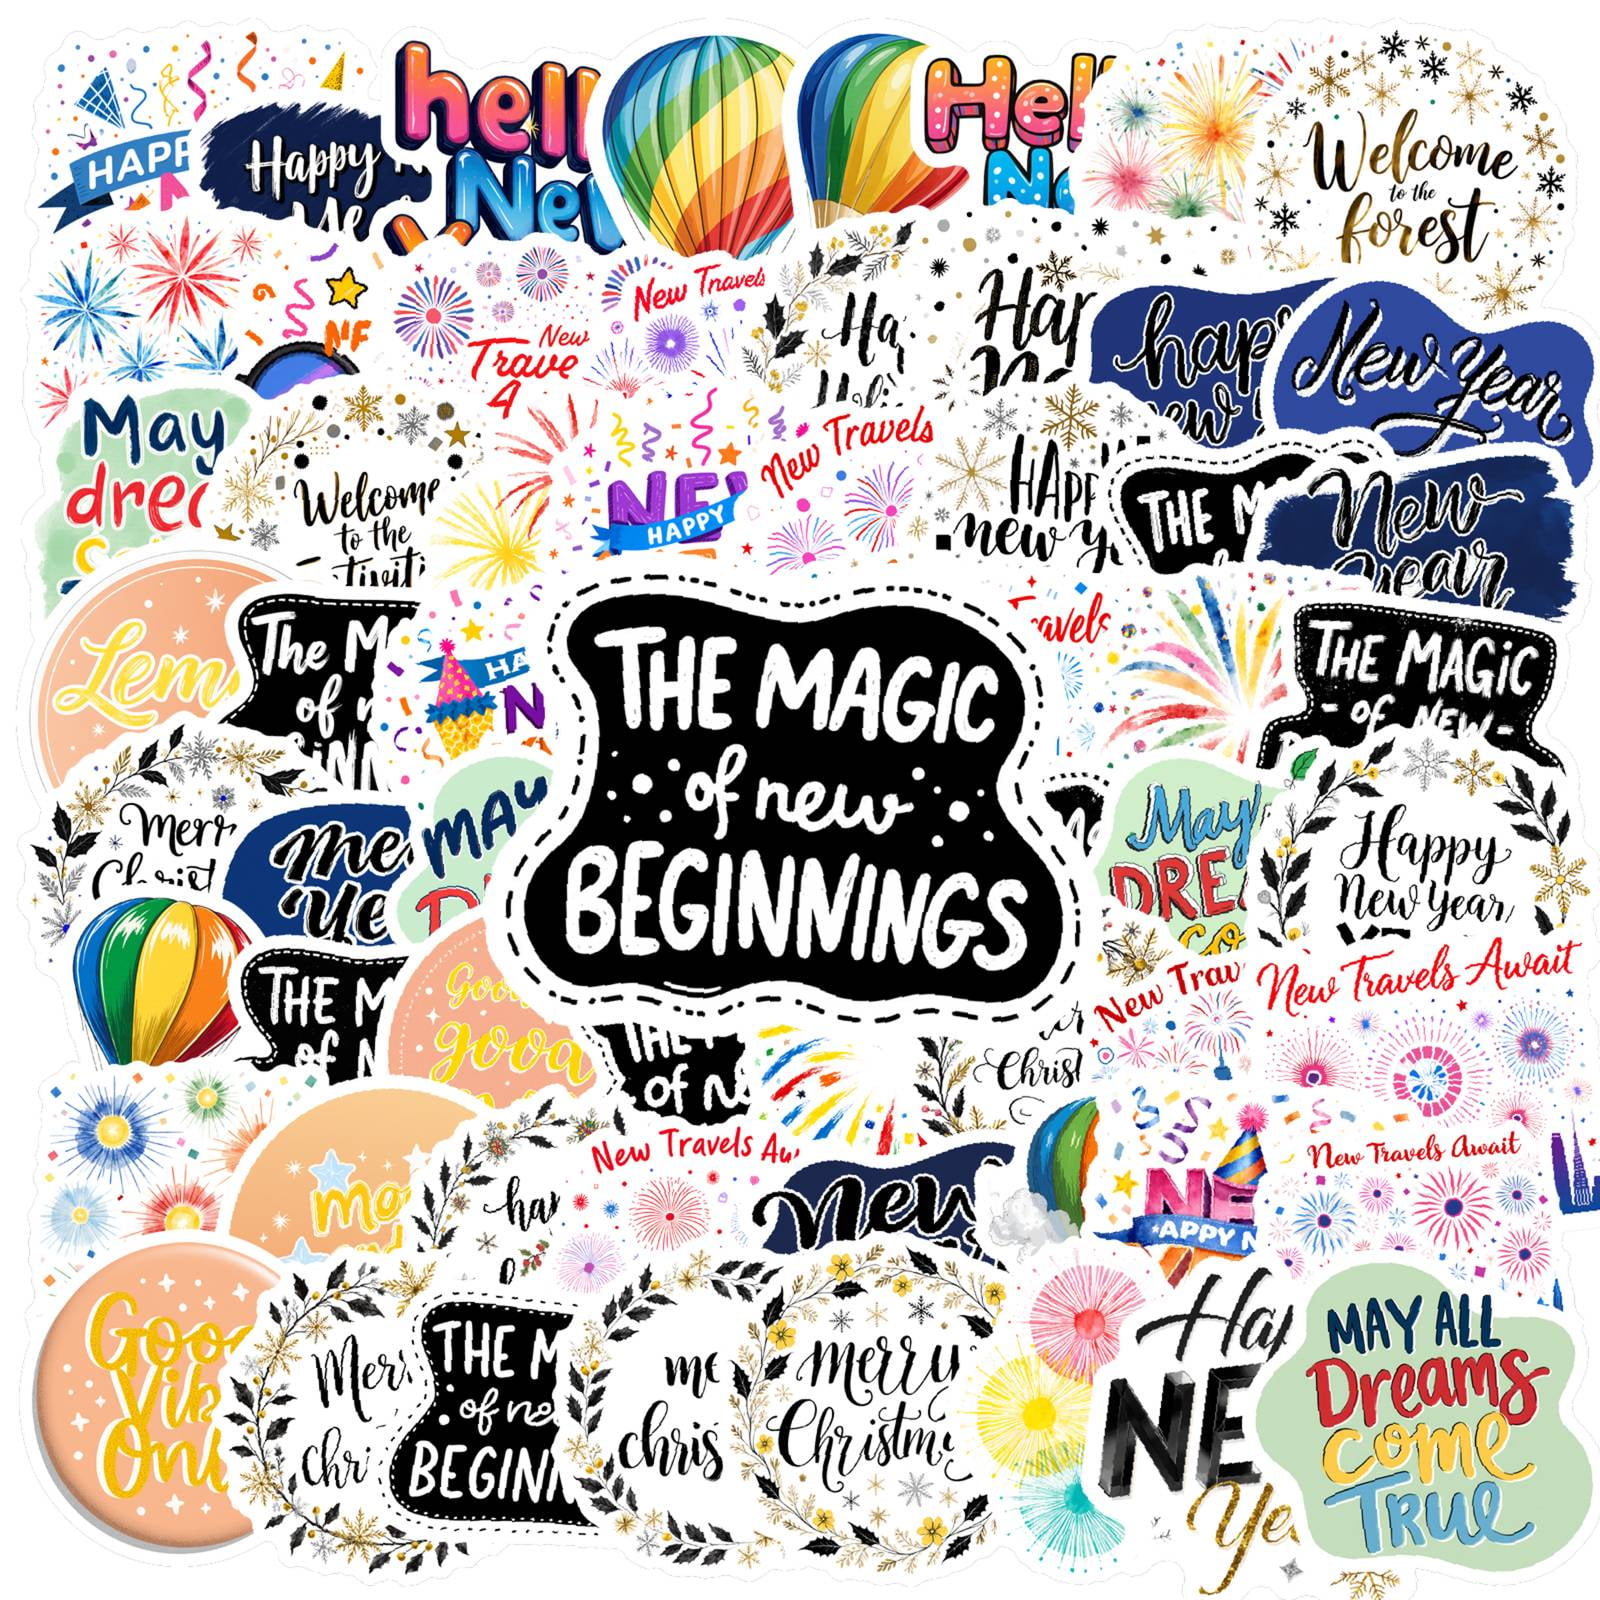 HAPP
Happy
hell
New
Hel
Welcome
to the
forest
New
Trave
A
New Travels
Ha
Hap
happ
ew
New Year
May
drea
Welcome
to the
NE
HAPPY
New Travels
HAPP
new y
THE M
New
year
Lem
The M
of n
INN
HA
N
THE MAGIC
of new
BEGINNINGS
ravels
THE MAGIC
- OF NEW -
Merr
Christ
me
ye
MAY
D
May
DRE
CO
Happy
New Year
THE M
OF N
Good
good
THE
of N
Christ
New Trav
New Travels Await
mo
hap
New Travels Aw
New
NE
APPY N
New Travels Await
Good
Vib
Onl
Mer
chri
THE M
of ne
BEGINN
me
chris
merry
Christm
Hap
NE
Ye
MAY ALL
Dreams
come
TRUE